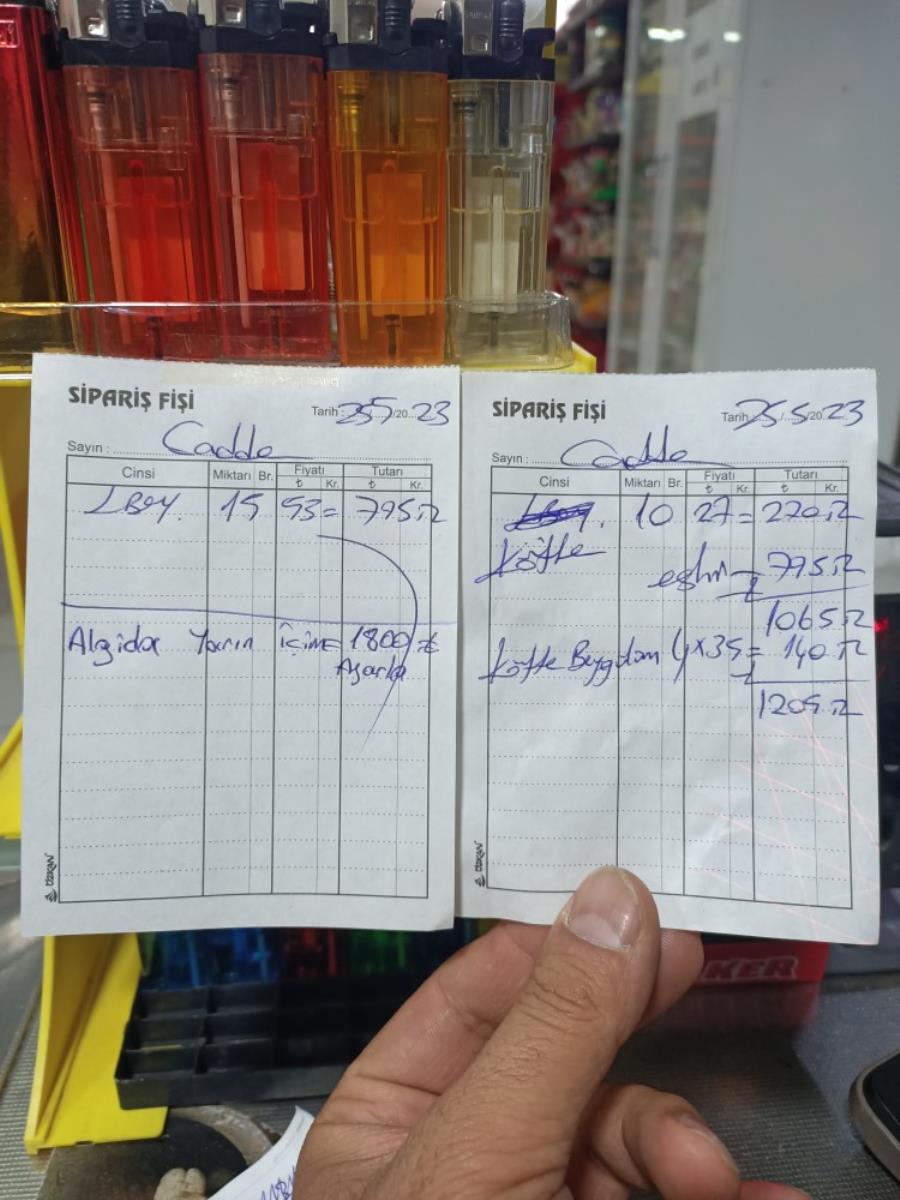 SİPARİŞ FİŞİ
Tarih : 25/5/2023
Sayın : Cadde
Cinsi Miktarı Br. Fiyatı Tutarı
₺ Kr. ₺ Kr.
LBOY. 15 53= 795.TL
Algida Yarın İçime 1800 ₺
Ayarla
ÖZKAN
SİPARİŞ FİŞİ
Tarih : 25.5/2023
Sayın : Cadde
Cinsi Miktarı Br. Fiyatı Tutarı
₺ Kr. ₺ Kr.
10 27= 270.TL
Köfte
795.TL
1065.TL
Köfte Baygdam 4x35= 140.TL
1205.TL
ÖZKAN
KER